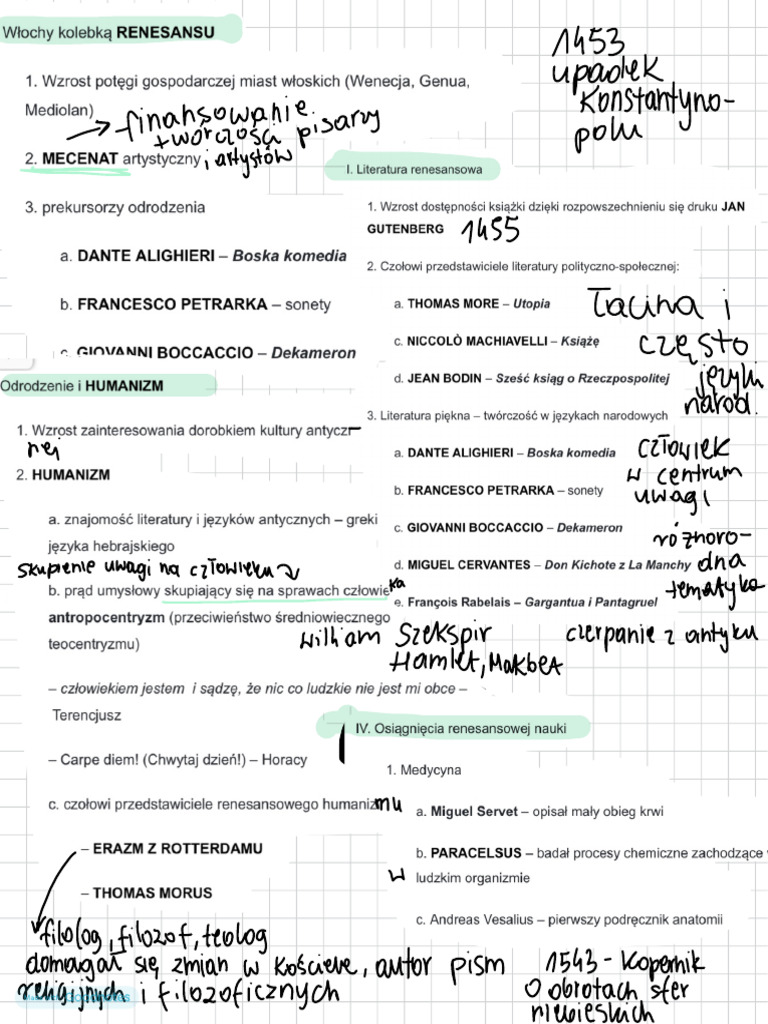 Włochy kolebką RENESANSU
1. Wzrost potęgi gospodarczej miast włoskich (Wenecja, Genua,
Mediolan)
→ finansowanie
twórczości pisarzy
2. MECENAT artystyczny i artystów
3. prekursorzy odrodzenia
a. DANTE ALIGHIERI – Boska komedia
b. FRANCESCO PETRARKA – sonety
c. GIOVANNI BOCCACCIO – Dekameron
Odrodzenie i HUMANIZM
1. Wzrost zainteresowania dorobkiem kultury antycz-
nej
2. HUMANIZM
a. znajomość literatury i języków antycznych – greki
języka hebrajskiego
skupienie uwagi na człowieku
b. prąd umysłowy skupiający się na sprawach człowieka
antropocentryzm (przeciwieństwo średniowiecznego
teocentryzmu)
– człowiekiem jestem i sądzę, że nic co ludzkie nie jest mi obce –
Terencjusz
– Carpe diem! (Chwytaj dzień!) – Horacy
c. czołowi przedstawiciele renesansowego humanizmu
– ERAZM Z ROTTERDAMU
– THOMAS MORUS
filolog, filozof, teolog
domagał się zmian w Kościele, autor pism
religijnych i filozoficznych
1453
upadek
Konstantyno-
polu
I. Literatura renesansowa
1. Wzrost dostępności książki dzięki rozpowszechnieniu się druku JAN
GUTENBERG 1455
2. Czołowi przedstawiciele literatury polityczno-społecznej:
a. THOMAS MORE – Utopia
c. NICCOLÒ MACHIAVELLI – Książę
d. JEAN BODIN – Sześć ksiąg o Rzeczpospolitej
Łacina i
często
języki
narod.
3. Literatura piękna – twórczość w językach narodowych
a. DANTE ALIGHIERI – Boska komedia
b. FRANCESCO PETRARKA – sonety
c. GIOVANNI BOCCACCIO – Dekameron
d. MIGUEL CERVANTES – Don Kichote z La Manchy
e. François Rabelais – Gargantua i Pantagruel
William Szekspir
Hamlet, Makbet
człowiek
w centrum
uwagi
różnoro-
dna
tematyka
czerpanie z antyku
IV. Osiągnięcia renesansowej nauki
1. Medycyna
a. Miguel Servet – opisał mały obieg krwi
b. PARACELSUS – badał procesy chemiczne zachodzące w
w ludzkim organizmie
c. Andreas Vesalius – pierwszy podręcznik anatomii
1543 - Kopernik
O obrotach sfer
niebieskich